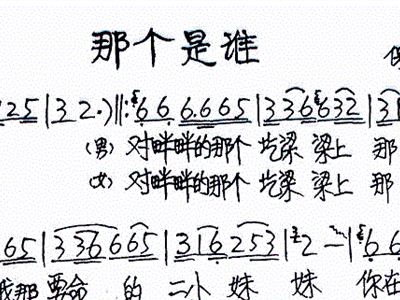 那个是谁
25|32.)‖:66 6.665|336632|3
(男)对畔畔的那个圪梁梁上 那
(女)对畔畔的那个圪梁梁上 那
65|336665|316253|2 —|66
我那要命 的 二小 妹 妹 你在